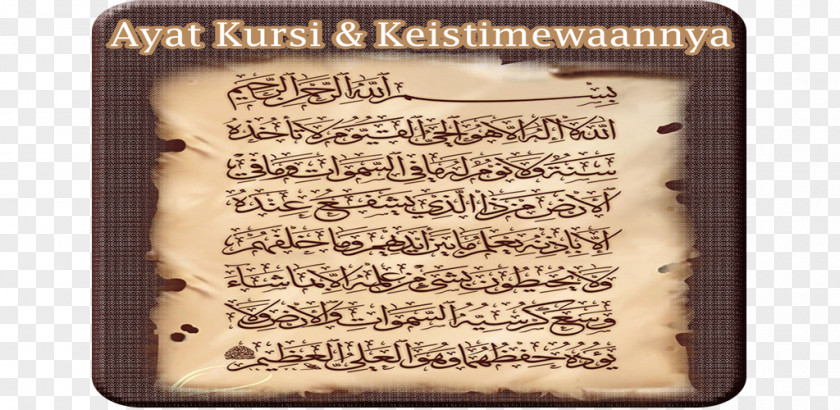 Ayat Kursi & Keistimewaannya
بسم الله الرحمن الرحيم
الله لا إله إلا هو الحي القيوم لا تأخذه
سنة ولا نوم له ما في السموات وما في
الأرض من ذا الذي يشفع عنده
إلا بإذنه يعلم ما بين أيديهم وما خلفهم
ولا يحيطون بشيء من علمه إلا بما شاء
وسع كرسيه السموات والأرض ولا
يؤده حفظهما وهو العلي العظيم